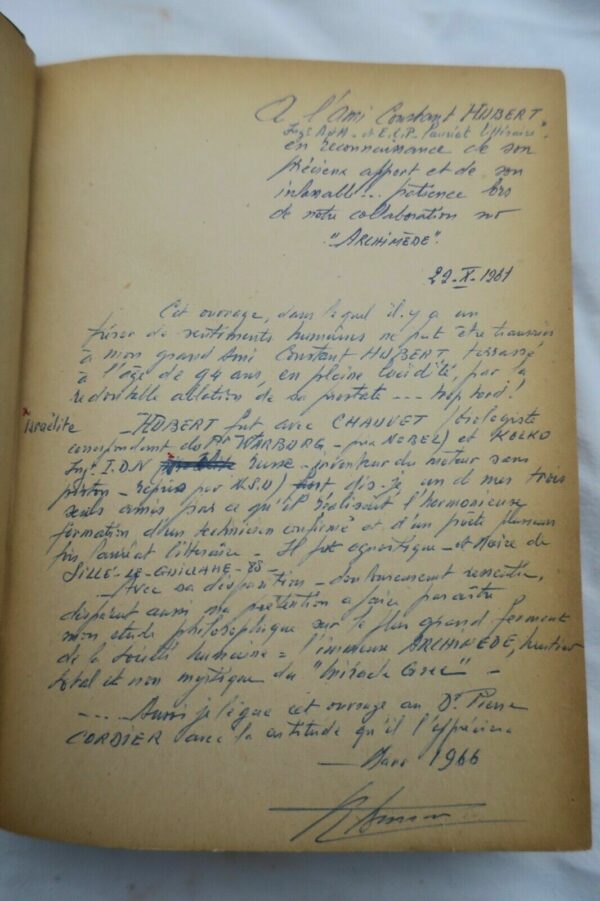 A l'Ami Constant HUBERT.
Ingr A&M - et E.C.P. Lauréat littéraire.
en reconnaissance de son
précieux apport et de son
patience lors
de notre collaboration
"ARCHIMÈDE".
22-X-1961
Cet ouvrage, dans lequel il y a un
trésor de sentiments humains ne put être transmis
à mon grand Ami Constant HUBERT, terrassé,
à l'âge de 94 ans, en pleine lucidité, par la
redoutable ablation de sa prostate ... trop tard!
Israélite - HUBERT fut avec CHAUVET (biologiste
correspondant du Pr WARBURG - prix NOBEL) et KOLKO
Ingr I.D.N russe - inventeur du moteur sans
piston - repris par N.S.U) dis-je un de mes trois
seuls amis parce qu'il réalisait l'harmonieuse
formation d'un technicien confirmé et d'un poète plusieurs
fois lauréat littéraire - Il fut agnostique - et Maire de
SILLÉ-LE-GUILLAUME -
- Avec sa disparition - douloureusement ressentie,
disparut aussi ma prétention à faire paraître
mon étude philosophique sur le plus grand ferment
de la Société humaine = l'immense ARCHIMÈDE, héritier
total et non mystique du "miracle Grec" -
- ... Aussi je lègue cet ouvrage au Dr Pierre
CORDIER avec la certitude qu'il l'appréciera
- Mars 1966